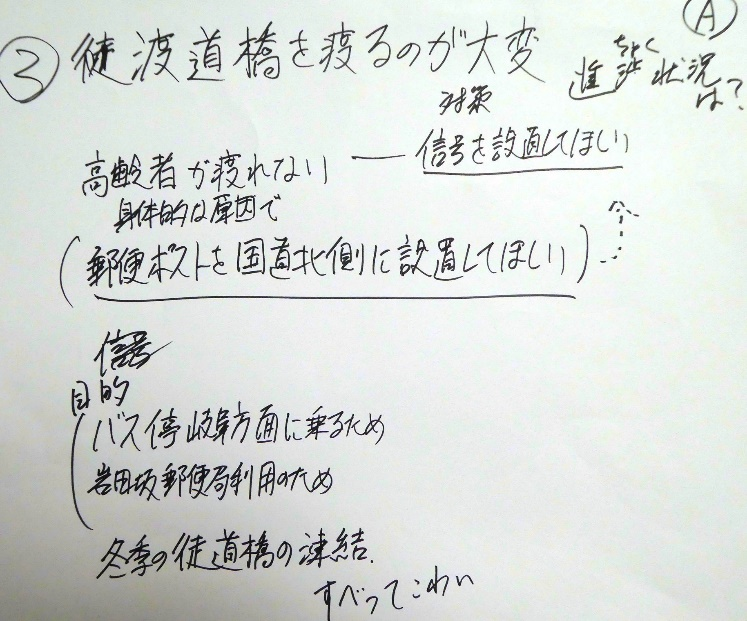 Ⓐ
③ 徒渡道橋を渡るのが大変
進ちょく状況は?
対策
高齢者が渡れない ― 信号を設置してほしい
身体的な原因で
(郵便ポストを国道北側に設置してほしい)
信号
目的
バス停岐阜方面に乗るため
岩田坂郵便局利用のため
冬季の徒道橋の凍結.
すべってこわい